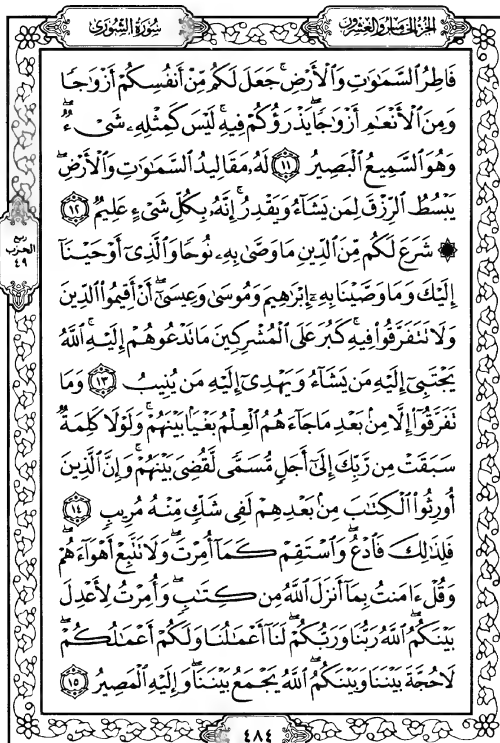 سُورَةُ الشُّورَىٰ
الجُزْءُ الخَامِسُ وَالعِشْرُونَ
فَاطِرُ ٱلسَّمَٰوَٰتِ وَٱلْأَرْضِۚ جَعَلَ لَكُم مِّنْ أَنفُسِكُمْ أَزْوَٰجًا
وَمِنَ ٱلْأَنْعَٰمِ أَزْوَٰجًا يَذْرَؤُكُمْ فِيهِۚ لَيْسَ كَمِثْلِهِۦ شَىْءٌۖ
وَهُوَ ٱلسَّمِيعُ ٱلْبَصِيرُ ١١ لَهُۥ مَقَالِيدُ ٱلسَّمَٰوَٰتِ وَٱلْأَرْضِۖ
يَبْسُطُ ٱلرِّزْقَ لِمَن يَشَآءُ وَيَقْدِرُۚ إِنَّهُۥ بِكُلِّ شَىْءٍ عَلِيمٌ ١٢
۞ شَرَعَ لَكُم مِّنَ ٱلدِّينِ مَا وَصَّىٰ بِهِۦ نُوحًا وَٱلَّذِىٓ أَوْحَيْنَآ
إِلَيْكَ وَمَا وَصَّيْنَا بِهِۦٓ إِبْرَٰهِيمَ وَمُوسَىٰ وَعِيسَىٰٓۖ أَنْ أَقِيمُوا۟ ٱلدِّينَ
وَلَا تَتَفَرَّقُوا۟ فِيهِۚ كَبُرَ عَلَى ٱلْمُشْرِكِينَ مَا تَدْعُوهُمْ إِلَيْهِۚ ٱللَّهُ
يَجْتَبِىٓ إِلَيْهِ مَن يَشَآءُ وَيَهْدِىٓ إِلَيْهِ مَن يُنِيبُ ١٣ وَمَا
تَفَرَّقُوٓا۟ إِلَّا مِنۢ بَعْدِ مَا جَآءَهُمُ ٱلْعِلْمُ بَغْيًۢا بَيْنَهُمْۚ وَلَوْلَا كَلِمَةٌ
سَبَقَتْ مِن رَّبِّكَ إِلَىٰٓ أَجَلٍ مُّسَمًّى لَّقُضِىَ بَيْنَهُمْۚ وَإِنَّ ٱلَّذِينَ
أُورِثُوا۟ ٱلْكِتَٰبَ مِنۢ بَعْدِهِمْ لَفِى شَكٍّ مِّنْهُ مُرِيبٍ ١٤
فَلِذَٰلِكَ فَٱدْعُۖ وَٱسْتَقِمْ كَمَآ أُمِرْتَۖ وَلَا تَتَّبِعْ أَهْوَآءَهُمْۖ
وَقُلْ ءَامَنتُ بِمَآ أَنزَلَ ٱللَّهُ مِن كِتَٰبٍۖ وَأُمِرْتُ لِأَعْدِلَ
بَيْنَكُمُۖ ٱللَّهُ رَبُّنَا وَرَبُّكُمْۖ لَنَآ أَعْمَٰلُنَا وَلَكُمْ أَعْمَٰلُكُمْۖ
لَا حُجَّةَ بَيْنَنَا وَبَيْنَكُمُۖ ٱللَّهُ يَجْمَعُ بَيْنَنَاۖ وَإِلَيْهِ ٱلْمَصِيرُ ١٥
ربع
الحزب
٤٩
٤٨٤